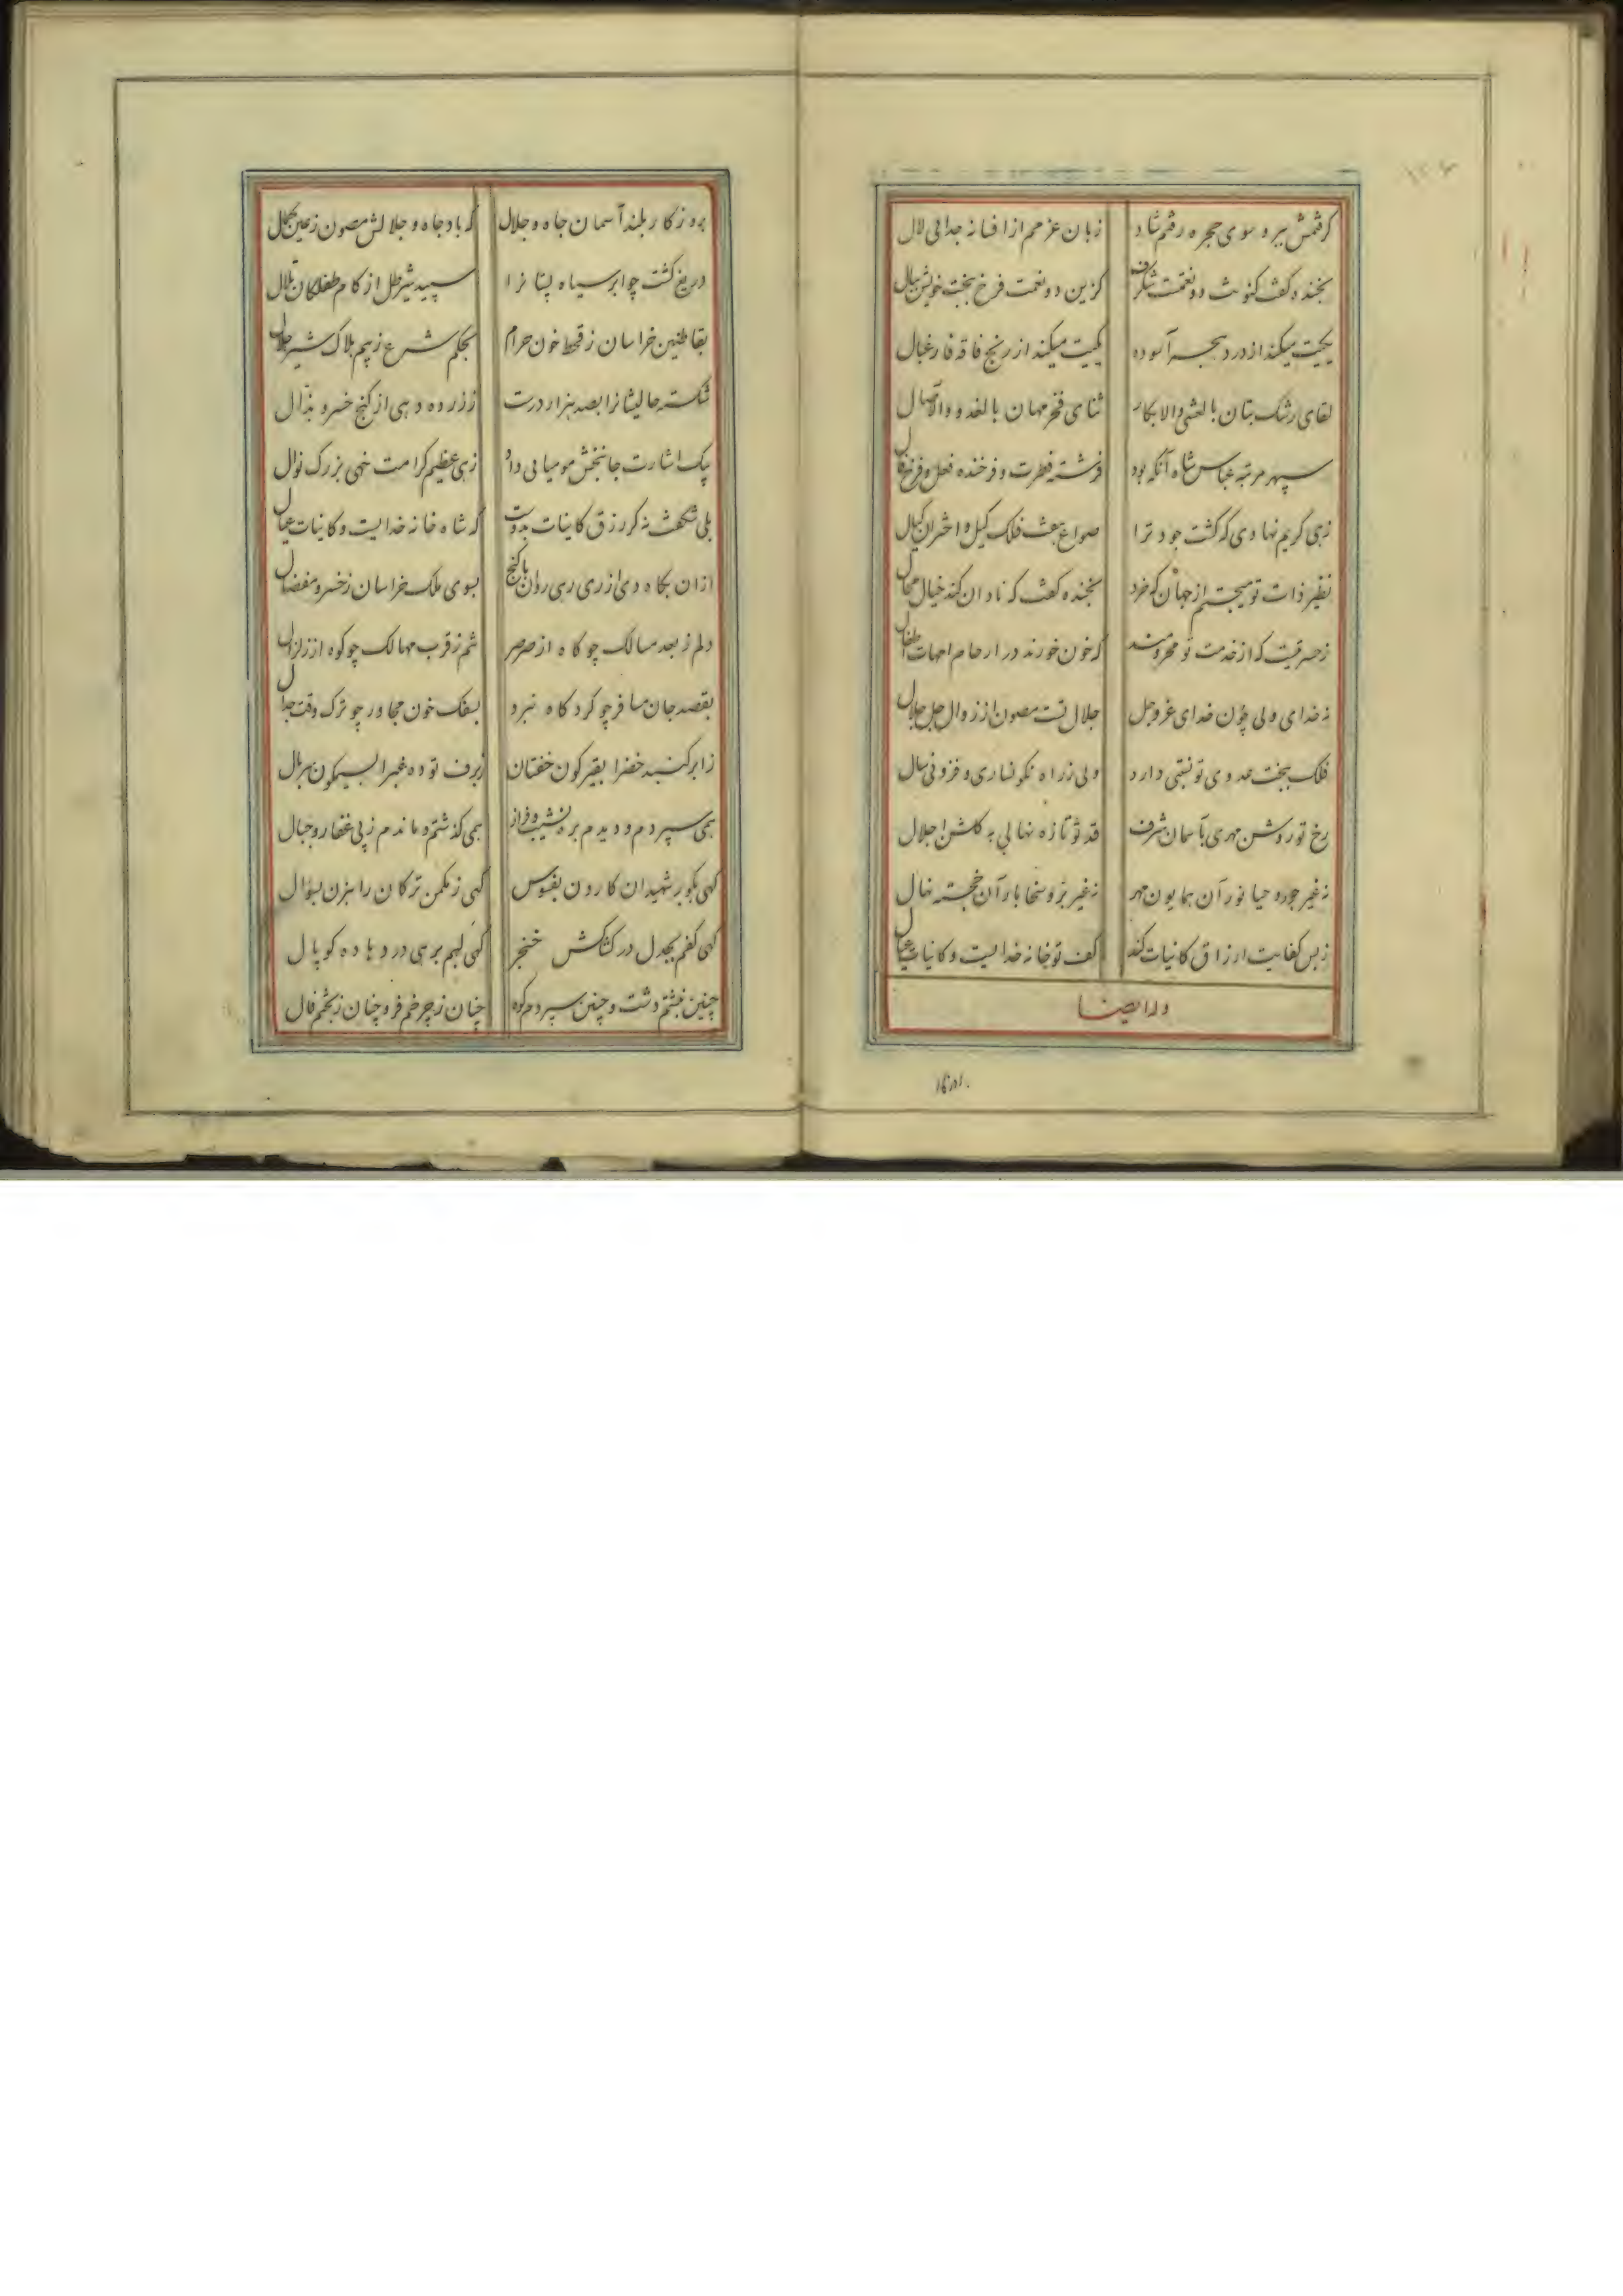 گرفتمش ببر و سوی حجره رفتم شاد زبان عزمم از افسانه جدایی لال
بخنده گفت کنونت دو نعمت شگرف کزین دو نعمت فرخ ببخت خویش ببال
یکیت میکند از درد هجر آسوده یکیت میکند از رنج فاقه فارغبال
لقای رشک بتان بالعشی والابکار ثنای فخر مهان بالغدو والآصال
سپهر مرتبه عباس شاه آنکه بود فرشته فطرت و فرخنده فعل و فرخ فال
زهی کریم نهادی که گشت جود ترا صواع هفت فلک کیل و اختران کیال
نظیر ذات تو میجستم از جهان که خرد بخنده گفت که نادان کند خیال محال
ز حسرتیست که از خدمت تو محرومند که خون خورند در ارحام امهات اطفال
نه خدای ولی چون خدای عزوجل جلال تست مصون از زوال جل جلال
فلک ببخت عدوی تو نسبتی دارد ولی ز راه نگونساری و فزونی سال
رخ تو روشن مهری بآسمان شرف قد تو تازه نهالی به گلشن اجلال
نه غیر جود و حیا نور آن همایون مهر نه غیر بر و سخا بار آن خجسته نهال
ز بس کفایت ارزاق کاینات کند کف تو خانه خدایست و کاینات عیال
وله ایضا
بروزگار بلند آسمان جاه و جلال که باد جاه و جلالش مصون ز عین کمال
دریغ گشت چو ابر سیاه پستانرا سپید شیر طل از کام طفلکان تلال
بقاطنین خراسان ز قحط خون حرام بحکم شرع ز بیم هلاک شیر حلال
شکسته حالیشانرا بصد هزار درست ز زر ده دهی از گنج خسرو بذال
بیک اشارت جانبخش مومیایی داد زهی عظیم کرامت خهی بزرگ نوال
بلی شگفت نه گر رزق کاینات بدوست که شاه خانه خدایست و کاینات عیال
از آن بگاه دی از ری رهی روان با گنج بسوی ملک خراسان ز خسرو مفضال
دلم ز بعد مسالک چو کاه از صرصر تنم ز قرب مهالک چو کوه از زلزال
بقصد جان مسافر چو کرد گاه نبرد بسفک خون مجاور چو ترک وقت جدال
ز ابر گنبد خضرا بقیرگون خفتان ز برف توده غبرا بسیمگون سربال
همی سپردم و دیدم بره نشیب و فراز همی گذشتم و ماندم ز پی قفار و جبال
گهی بگور شهیدان کارون بفسوس گهی ز مکمن ترکان راهزن بسؤال
گهی کفم بجدل در کشاکش خنجر گهی لبم برهی در دهاده کوپال
چنین نبشتم دشت و چنین سپردم کوه چنان ز چرخم فر و چنان ز بختم فال